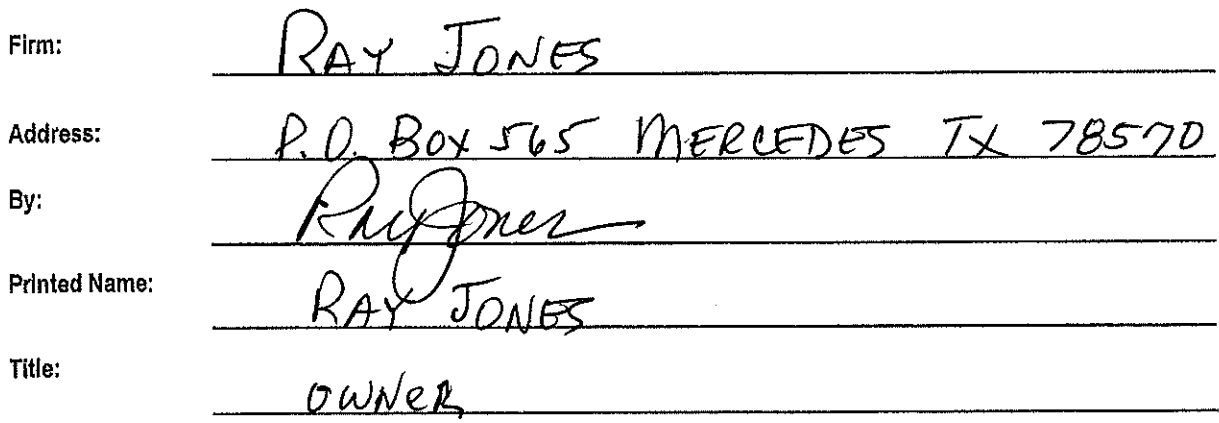 Firm: RAY JONES
Address: P.O. BOX 565 MERCEDES TX 78570
By: Ray Jones
Printed Name: RAY JONES
Title: OWNER